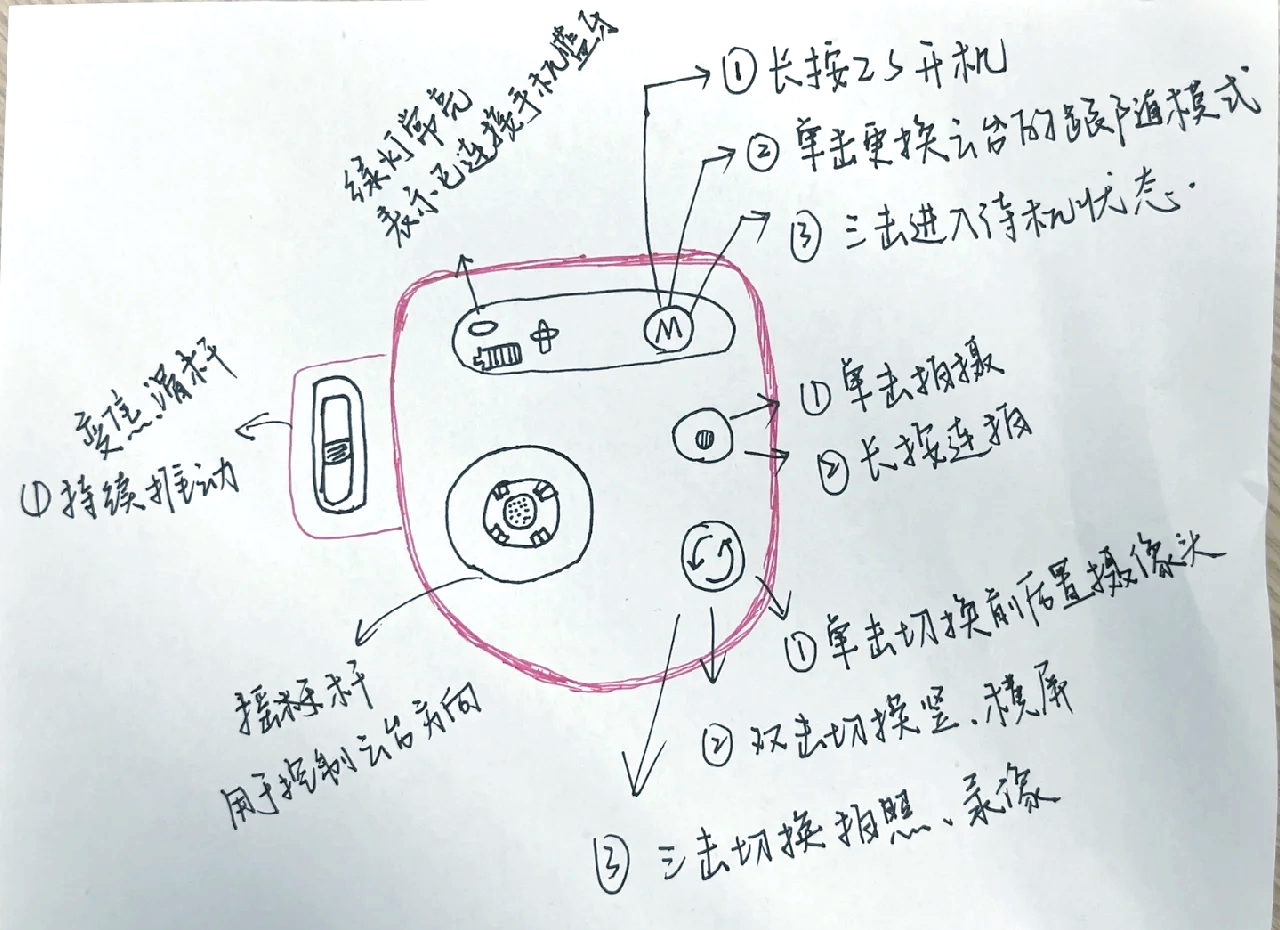 绿灯常亮
表示已连接手机蓝牙
①长按2S开机
②单击更换云台的跟随模式
③三击进入待机状态.
M
变焦滑杆
①持续推动
①单击拍摄
②长按连拍
摇杆
用于控制云台方向
①单击切换前后置摄像头
②双击切换竖、横屏
③三击切换拍照、录像